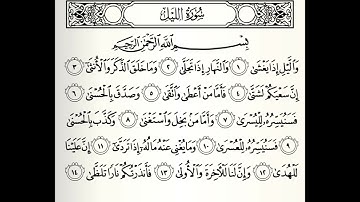 سُورَةُ اللَّيْلِ
بِسْمِ اللَّهِ الرَّحْمَٰنِ الرَّحِيمِ
وَالَّيْلِ إِذَا يَغْشَىٰ ١ وَالنَّهَارِ إِذَا تَجَلَّىٰ ٢ وَمَا خَلَقَ الذَّكَرَ وَالْأُنثَىٰ ٣
إِنَّ سَعْيَكُمْ لَشَتَّىٰ ٤ فَأَمَّا مَنْ أَعْطَىٰ وَاتَّقَىٰ ٥ وَصَدَّقَ بِالْحُسْنَىٰ ٦
فَسَنُيَسِّرُهُ لِلْيُسْرَىٰ ٧ وَأَمَّا مَنْ بَخِلَ وَاسْتَغْنَىٰ ٨ وَكَذَّبَ بِالْحُسْنَىٰ
٩ فَسَنُيَسِّرُهُ لِلْعُسْرَىٰ ١٠ وَمَا يُغْنِي عَنْهُ مَالُهُ إِذَا تَرَدَّىٰ ١١ إِنَّ عَلَيْنَا
لَلْهُدَىٰ ١٢ وَإِنَّ لَنَا لَلْآخِرَةَ وَالْأُولَىٰ ١٣ فَأَنذَرْتُكُمْ نَارًا تَلَظَّىٰ ١٤